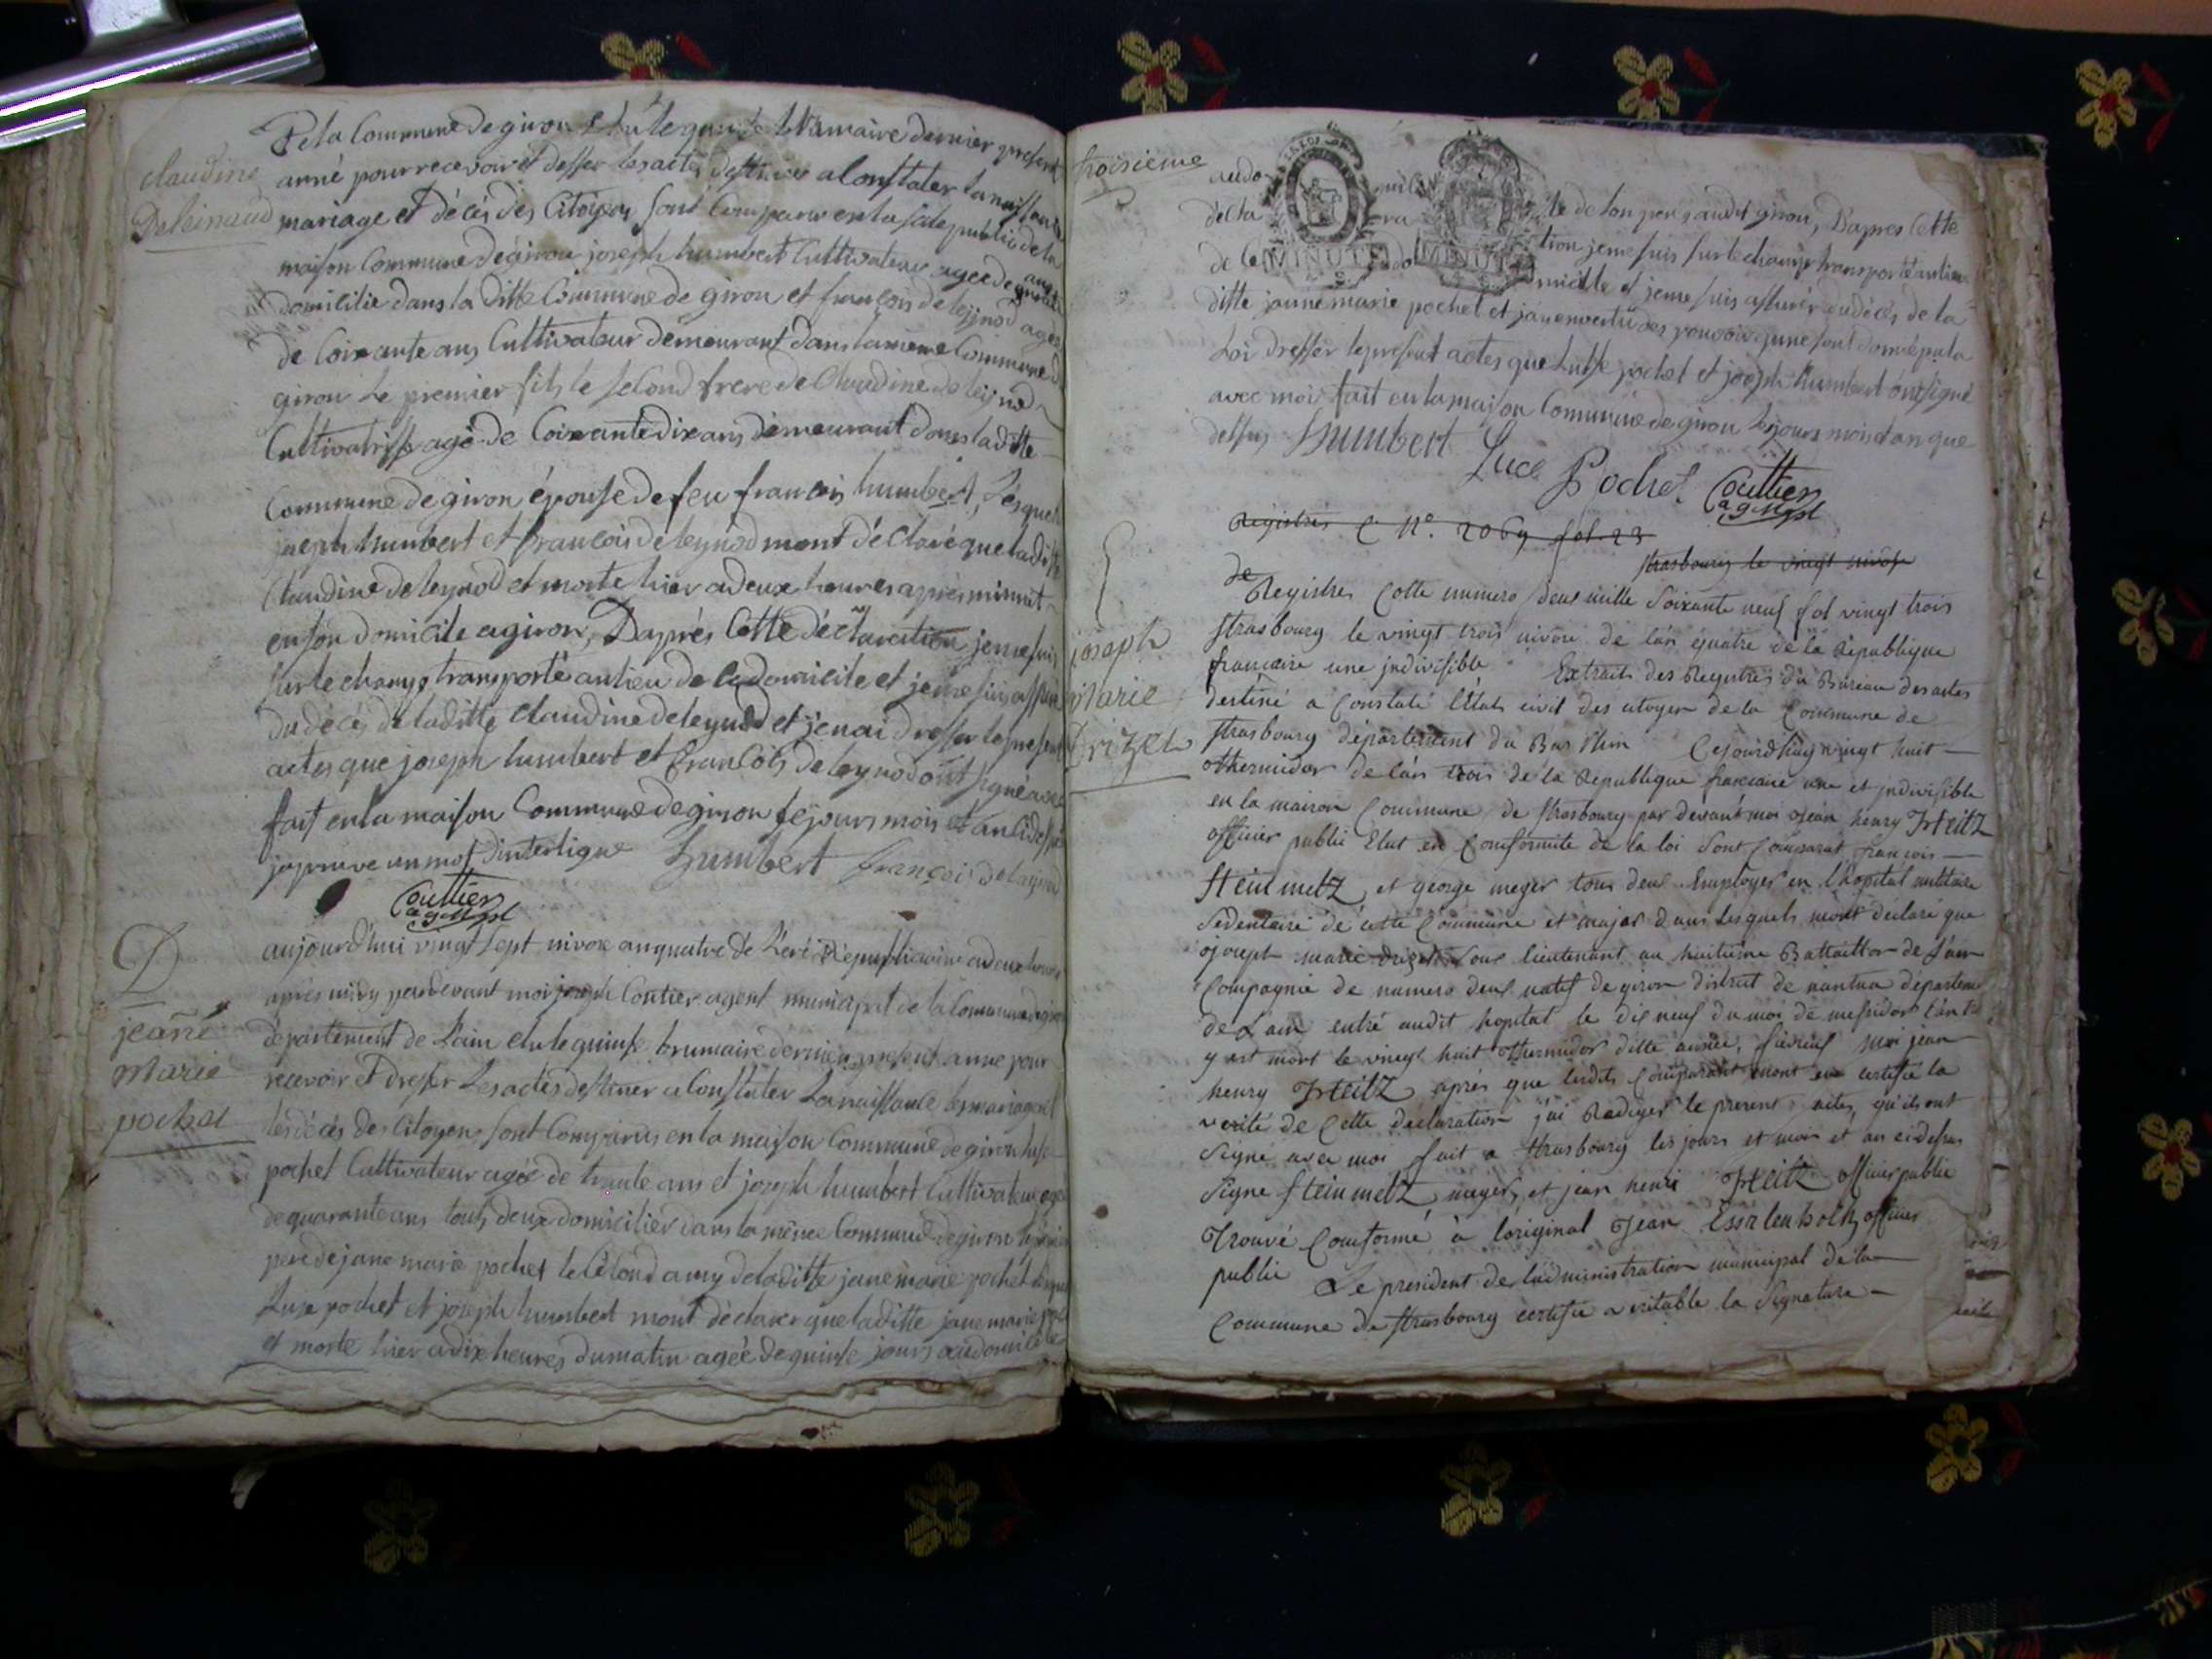 claudine
Deleinaud
De la Commune de giron Elu le quinze brumaire dernier present
anné pour recevoir et dresser les actes destinés a Constater la naissance
mariage et décés des Citoyens sont Comparus en la sale public de la
maison Commune de giron joseph humbert Cultivateur agée de quarante ans
domicilié dans la ditte Commune de giron et françois deleynod agée
de Soixante ans Cultivateur demeurant dans la meme Commune de
giron Le premier fils le second frere de Claudine deleynod
Cultivatrisse agé de Soixante dix ans demeurant dans laditte
Commune de giron épouse de feu francois humbert, Lesquels
joseph humbert et francois deleynod mont déclaré que laditte
Claudine deleynod et morte hier a deux heures apres minuit
en son domicile a giron, Daprés Cette déclaration je me suis
sur le champ transporté au lieu de ce domicile et je me suis assuré
du décés de laditte Claudine deleynod et jen ai dresser le present
actes que joseph humbert et francois deleynod ont signé avec
fait en la maison Commune de giron le jours mois et an ci dessus
japruve un mot dinterligne humbert françois deleynod
Couttier
ag mpl
D
jeanne
Marie
pochet
aujourd'hui vingt sept nivose an quatre de L'eré Républicaine a deux heures
aprés midy pardevant moi joseph Coutier agent municipal de la Commune de giron
département de Lain elu le quinse brumaire dernier present anné pour
recevoir et dresser Les actes destiner a Constater La naissance les mariages et
les décés des Citoyens sont Comparus en la maison Commune de giron luse
pochet Cultivateur agée de trante ans et joseph humbert Cultivateur agée
de quarante ans touts deux domicilier dans la méme Commune de giron le premier
pere de jane marie pochet le second amy de laditte jane marie pochet lesquels
Luse pochet et joseph humbert mont déclarer que laditte jane marie pochet
et morte hier a dix heures du matin agée de quinse jours au domicile
troisieme
audo
de son pere audit giron, Dapres Cette
je me suis sur le champ transporté au lieu
MINUTE
de ce domicille et je me suis assurér du décés de la
ditte janne marie pochet et jai en vertu des pouvoir qui me sont donné par la
Loi dresser le present actes que Lusse pochet et joseph humbert ont signé
avec moi fait en la maison Commune de giron le jours mois et an que
dessus humbert Luce Pochet Couttier
ag mpl
Registres C N°. 2069 fol. 23
strasbourg le vingt nivose
de Registres Cotte numero deux mille Soixante neuf fol vingt trois
strasbourg le vingt trois nivose de lan quatre de la Republique
joseph
Marie
Drizet
francaise une indivisible Extrait des Registres du Bureau des actes
destiné a Constaté l'Etat civil des citoyen de la Commune de
strasbourg département du Bas Rhin Cejourdhuy vingt huit
thermidor de l'an trois de la Republique francaise une et indivisible
en la maison Commune de strasbourg par devant moi jean henry Heitz
officier public Elut en Conformité de la loi Sont Comparut françois
Steinmetz, et george meyer tous deux Employes en l'hopital militaire
Sédentaire de cette Commune et majeur dans lesquels mont déclaré que
joseph marie drizet Sous lieutenant au huitieme Battaillon de Lain
Compagnie de numero deux natif de giron district de nantua départem
de Lain entré audit hopital le dix neuf du moi de messidor l'an
y est mort le vingt huit thermidor ditte année, fievreux moi jean
henry Heitz après que lesdits Comparant mont en certifié la
verité de Cette déclaration j'ai Rediger le present actes, qu'ils ont
Signé avec moi fait a strasbourg les jours et mois et an ci dessus
Signe Steinmetz, meyer, et jean henri Heitz officier public
Trouvé Conforme à l'original jean officier
public Le president de ladministration municipal de la
Commune de strasbourg certifie veritable la Signature